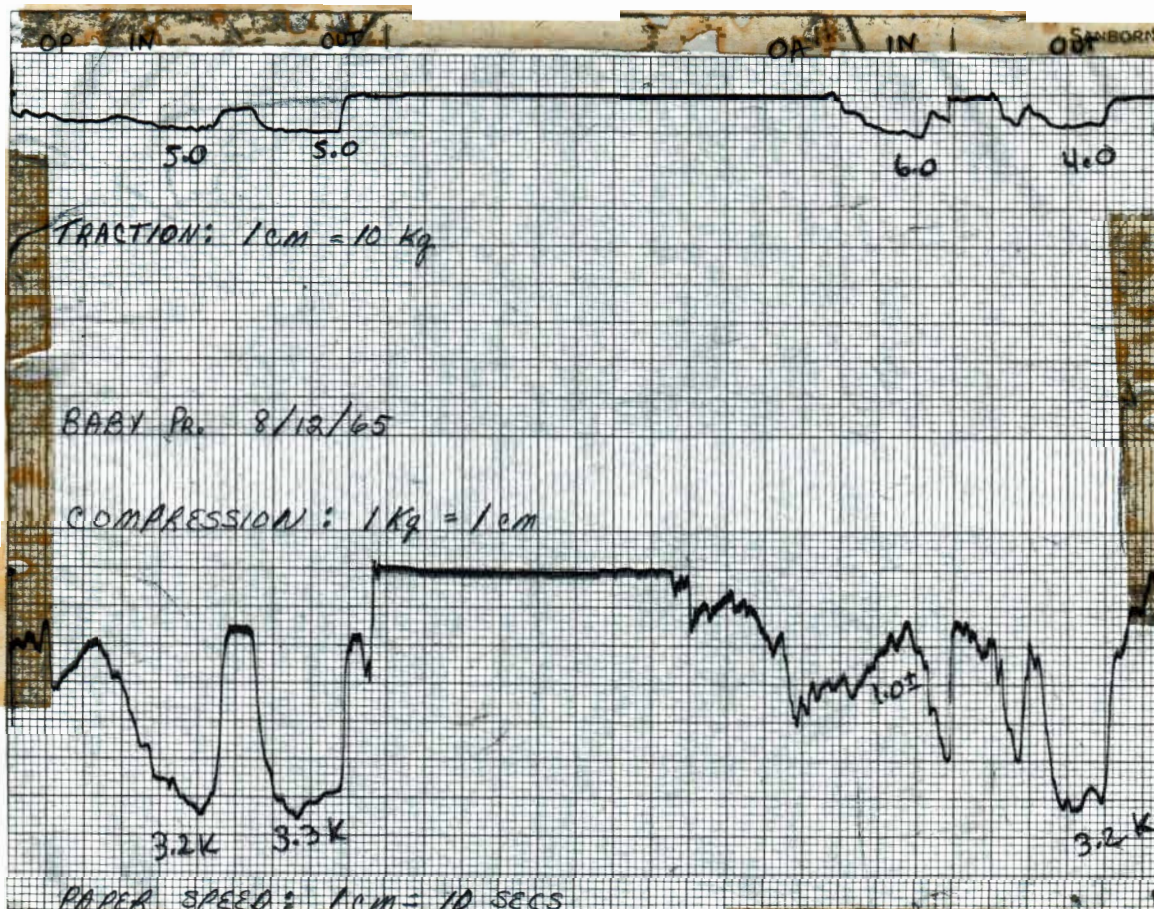 OP IN OUT OA IN OUT SANBORN
5.0 5.0 6.0 4.0
TRACTION: 1cm = 10 Kg
BABY PR. 8/12/65
COMPRESSION: 1 Kg = 1 cm
1.0±
3.2K 3.3K 3.2K
PAPER SPEED: 1 cm = 10 SECS